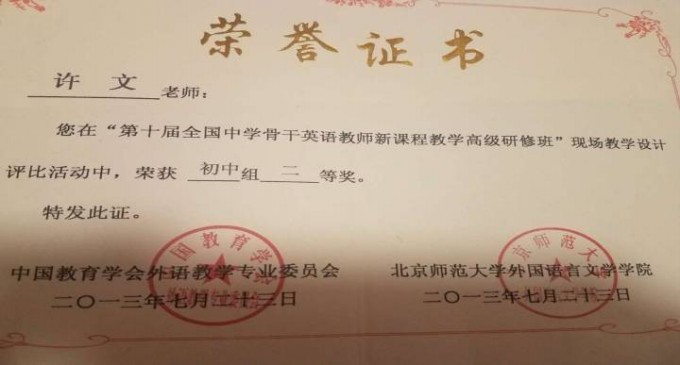 荣誉证书
许文老师：
您在“第十届全国中学骨干英语教师新课程教学高级研修班”现场教学设计
评比活动中，荣获 初中组 二等奖。
特发此证。
中国教育学会外语教学专业委员会
二〇一三年七月二十三日
北京师范大学外国语言文学学院
二〇一三年七月二十三日